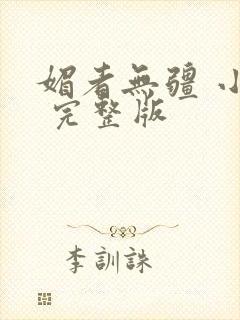 媚者無疆 小
完整版
李訓誅